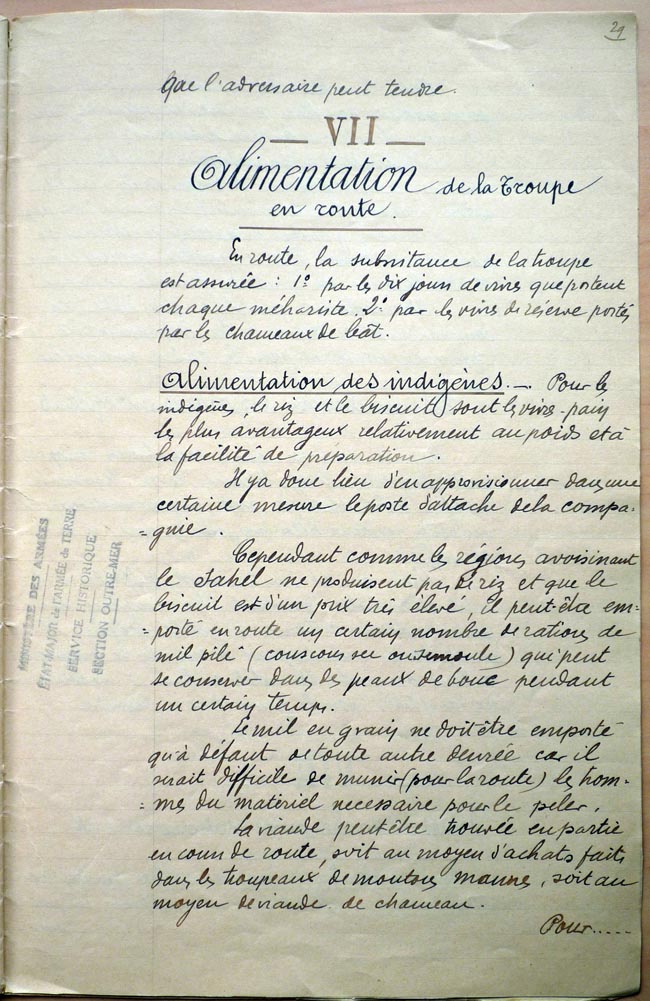 29
Que l'adversaire peut tendre.
— VII —
Alimentation de la Troupe
en route.
En route, la subsistance de la troupe
est assurée : 1º par les dix jours de vivres que portent
chaque méhariste. 2º par les vivres de réserve portés
par les chameaux de bât.
Alimentation des indigènes. — Pour les
indigènes, le riz et le biscuit sont les vivres-pain
les plus avantageux relativement au poids et à
la facilité de préparation.
Il y a donc lieu d'en approvisionner dans une
certaine mesure le poste d'attache de la compa-
=gnie.
Cependant comme les régions avoisinant
le Sahel ne produisent pas de riz et que le
biscuit est d'un prix très élevé, il peut-être em-
=porté en route un certain nombre de rations de
mil pilé (couscous sec ou semoule) qui peut
se conserver dans des peaux de bouc pendant
un certain temps.
Le mil en grain ne doit être emporté
qu'à défaut de toute autre denrée car il
serait difficile de munir (pour la route) les hom-
=mes du matériel necessaire pour le piler.
La viande peut être trouvée en partie
en cours de route, soit au moyen d'achats faits
dans les troupeaux de moutons maures, soit au
moyen de viande de chameau.
Pour.....
MINISTÈRE DES ARMÉES
ÉTAT-MAJOR de l'ARMÉE de TERRE
SERVICE HISTORIQUE
SECTION OUTRE-MER